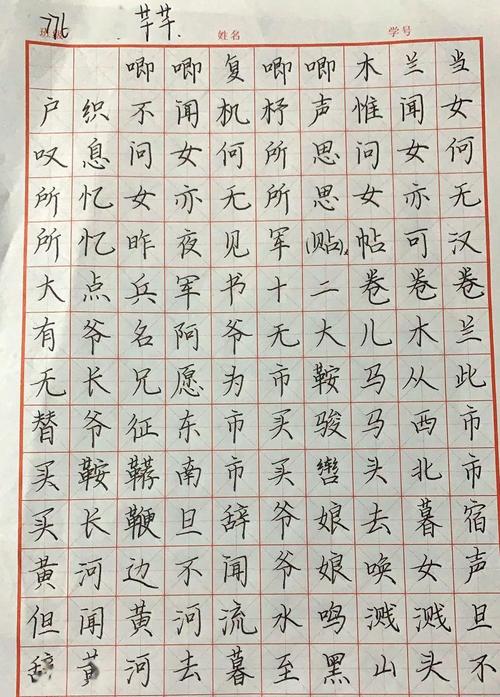 芊芊.
班级 姓名 学号
唧唧复唧唧木兰当
户织不闻机杼声惟闻女
叹息问女何所思问女何
所忆女亦无所思女亦无
所忆昨夜见军(贴)、帖可汉
大点兵军书十二卷卷卷
有爷名阿爷无大儿木兰
无长兄愿为市鞍马从此
替爷征东市买骏马西市
买鞍鞯南市买辔头北市
买长鞭旦辞爷娘去暮宿
黄河边不闻爷娘唤女声
但闻黄河流水鸣溅溅旦
辞黄河去暮至黑山头不